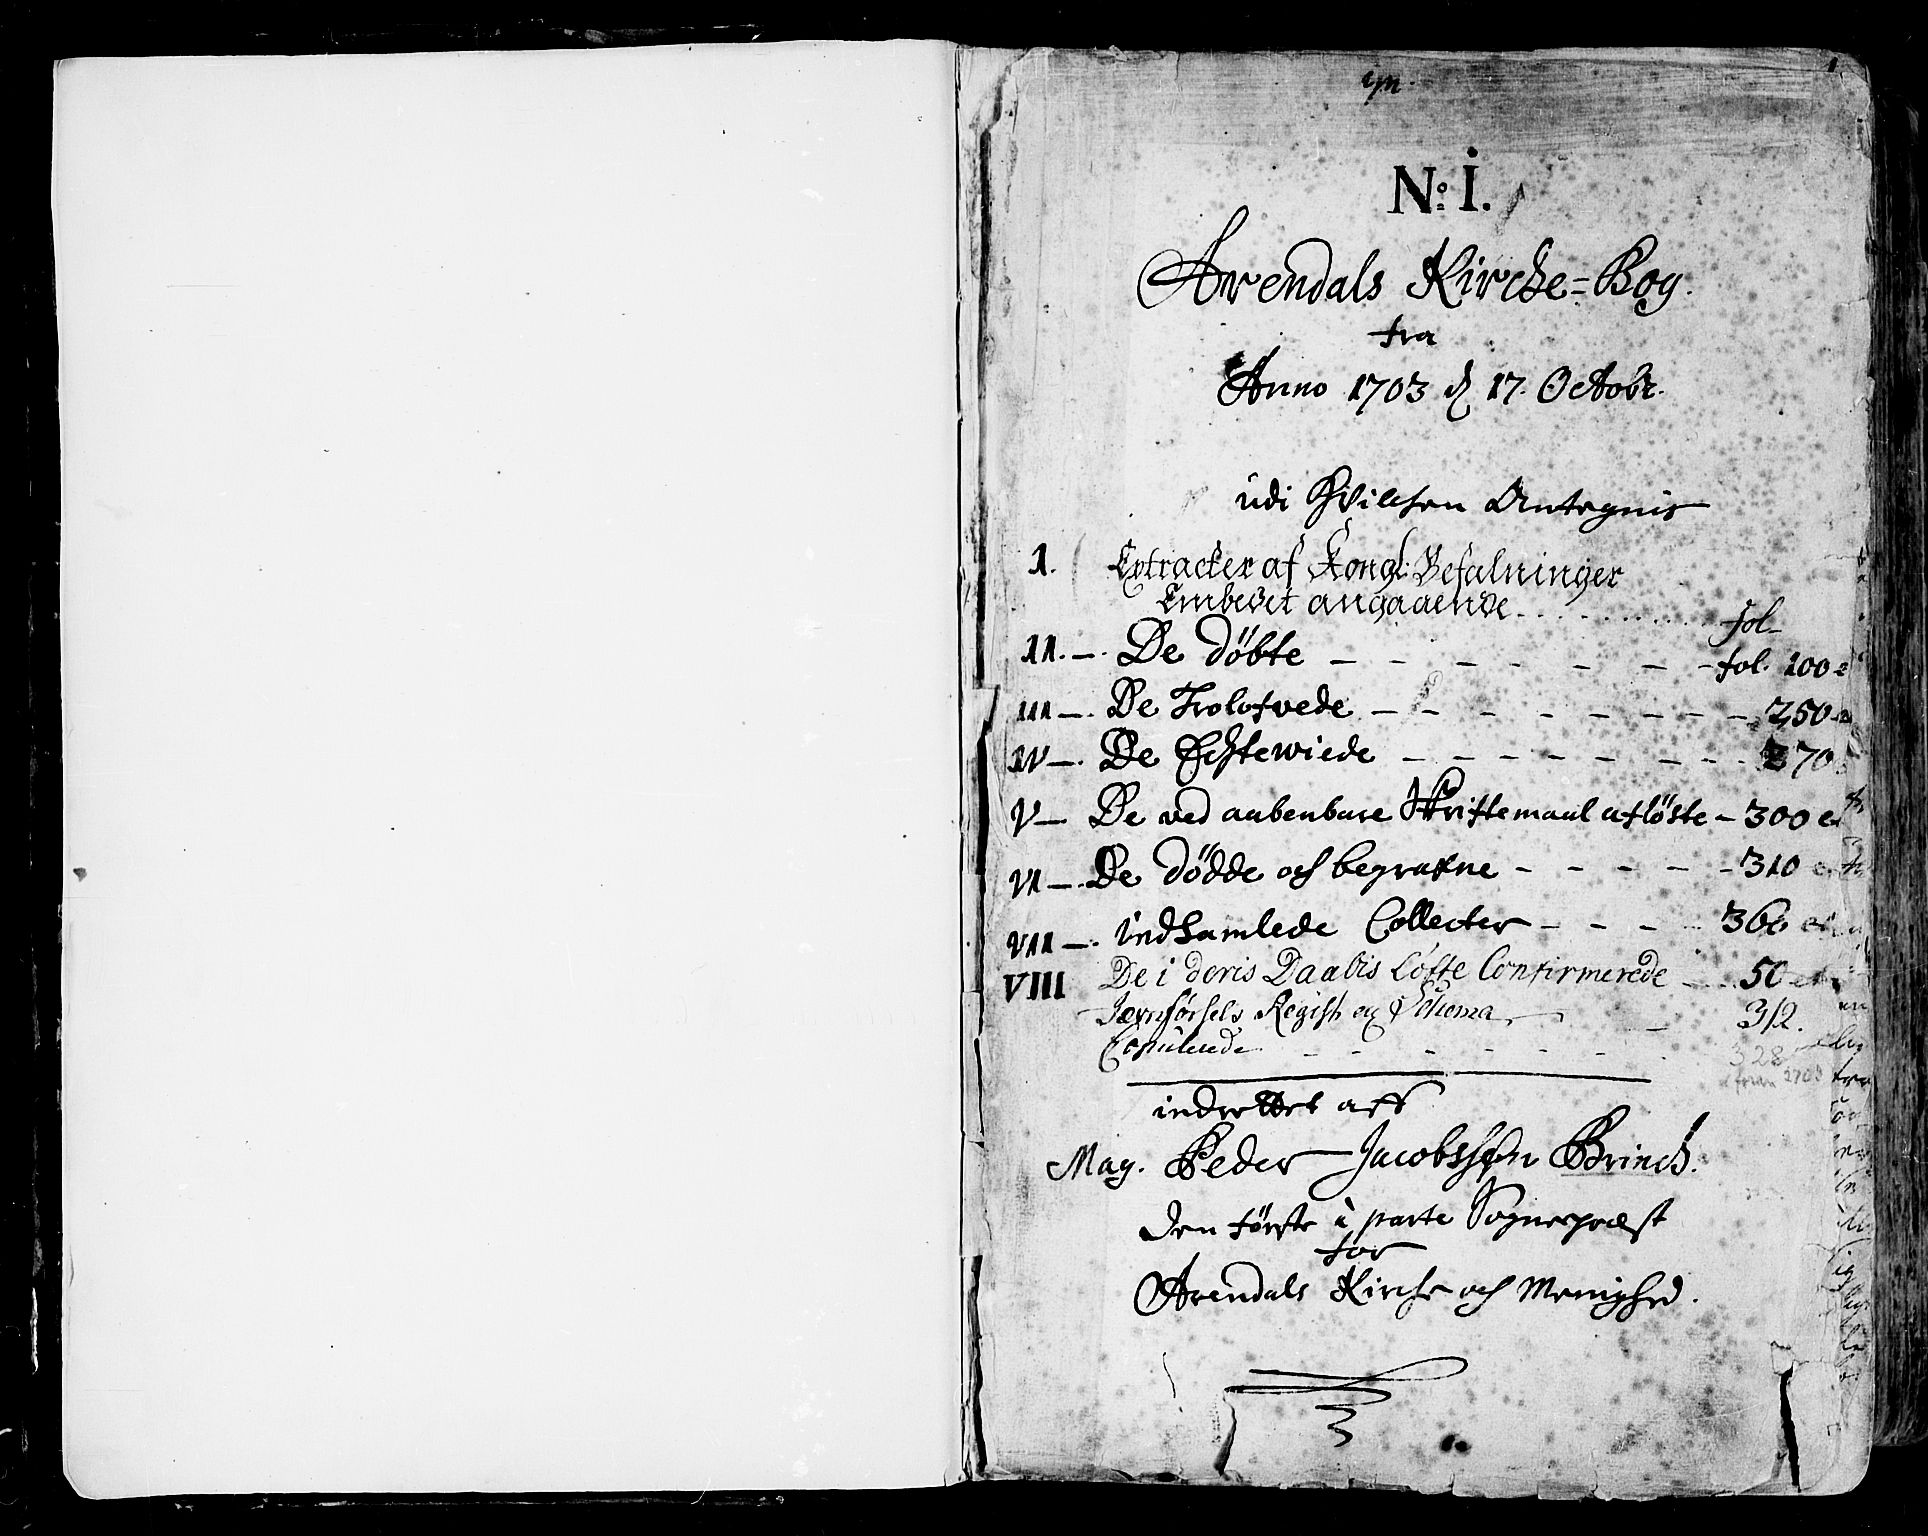 No: 1.
Arendals Kirche=Bog.
fra
Anno 1703 d 17. Octobr.
udi Hvilchen Antegnis
1. Extracter af Kongl: Befalninger
Embedet angaaende . . . . . . . . . fol-
II. —. De døbte — — — — — — — fol. 100
III —. De Trolofvede — — — — — — — 250
IV —. De Echtewiede — — — — — — — 270
V — De ved aabenbare Skriftemaal afløste — 300
VI —. De dødde och begrafne — — — — — 310
VII —. indsamlede Collecter — — — — 360
VIII De i deris Daabis Løfte Confirmerede — 50
Jævnførsels Regist og Schema — 312.
Copulerede — — — — — — 328
indrettet aff
Mag. Peder Jacobssøn Brinch.
den første i parte Sognepræst
for
Arendals Kirche och Menighed.